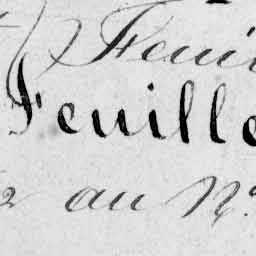 Feui
Feuille
2 au N.